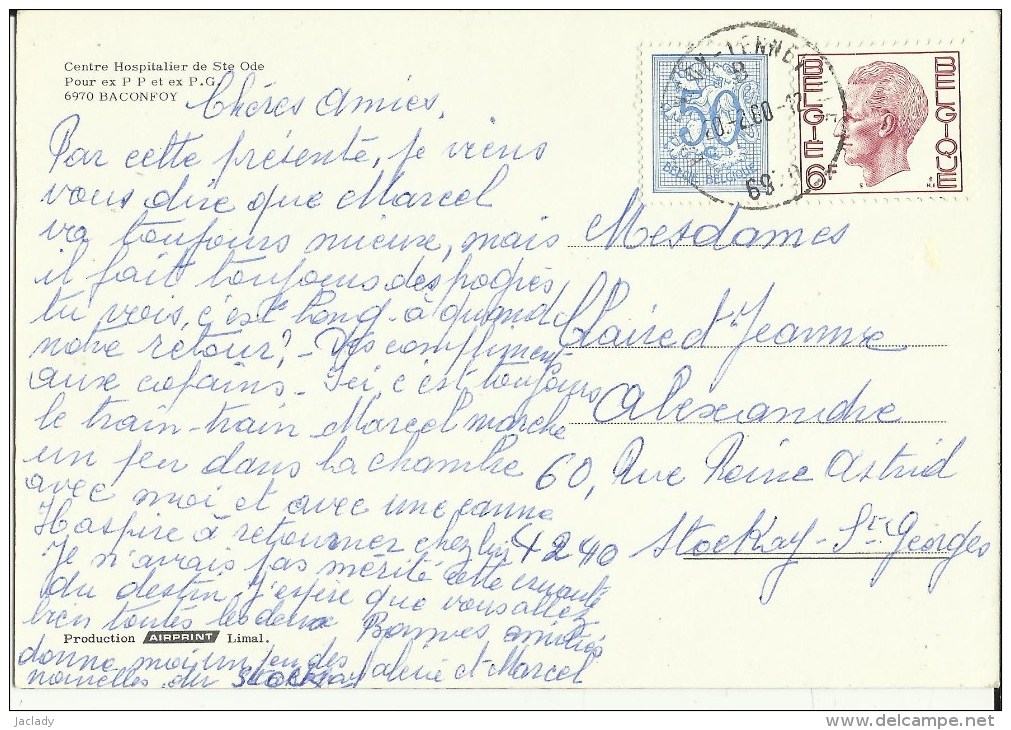 Centre Hospitalier de Ste Ode
Pour ex P P et ex P.G.
6970 BACONFOY
Chéres Amies,
Par cette présente, je viens
vous dire que Marcel
va toujours mieux, mais
il fait toujours des progrès
tu vois, c'est long - à quand
notre retour? - Des compliments
aux copains - Ici, c'est toujours
le train-train Marcel marche
un peu dans la chambre
avec moi et avec une canne
Il aspire à retourner chez lui
Je n'avais pas mérité cette cruauté
du destin. J'espère que vous allez
bien toutes les deux Bonnes amitiés
donne moi un peu des
nouvelles du Stockay
Valérie et Marcel
Production AIRPRINT Limal.
50
c
BELGIE BELGIQUE
BELGIQUE
BELGIE 6
B
20.-2.80-12
6970
Mesdames
Claire et Jeanne
Alexandre
60, Rue Reine Astrid
4240 Stockay-St-Georges
jaclady
www.delcampe.net